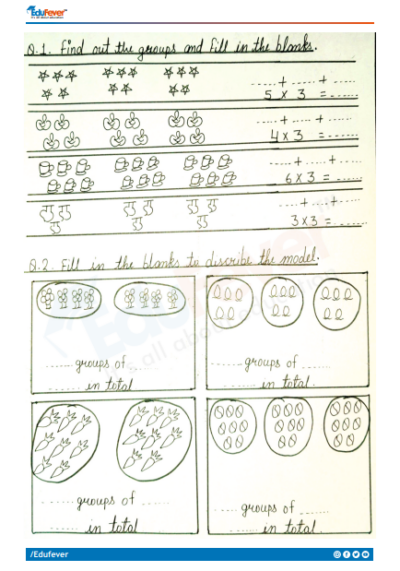 EduFever
Q.1. Find out the groups and fill in the blanks.
......+......+......
5 x 3 = ......
......+......+......
4 x 3 = ......
......+......+......
6 x 3 = ......
......+......+......
3 x 3 = ......
Q.2. Fill in the blanks to describe the model.
...... groups of ......
...... in total
...... groups of ......
...... in total.
...... groups of ......
...... in total
...... groups of ......
...... in total
/Edufever